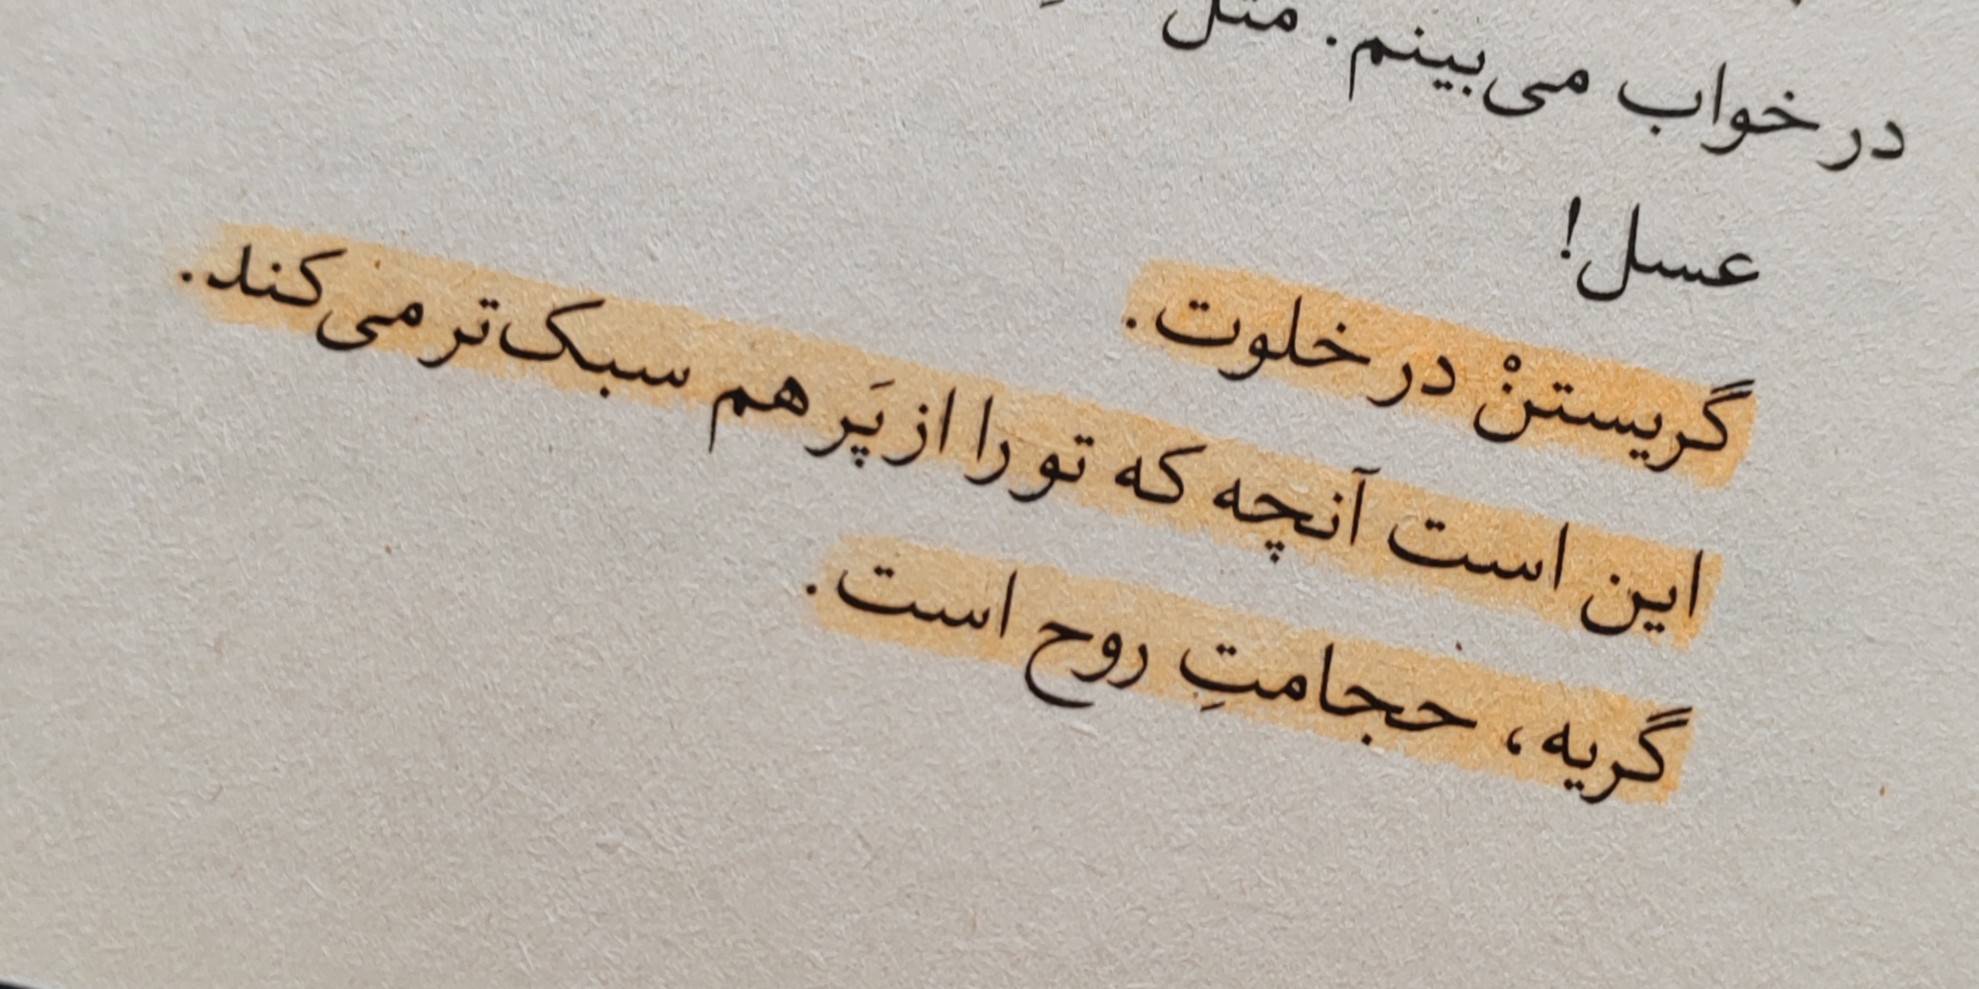 در خواب می‌بینم. مثل
عسل!
گریستنْ در خلوت.
این است آنچه که تو را از پَر هم سبک‌تر می‌کند.
گریه، حجامتِ روح است.